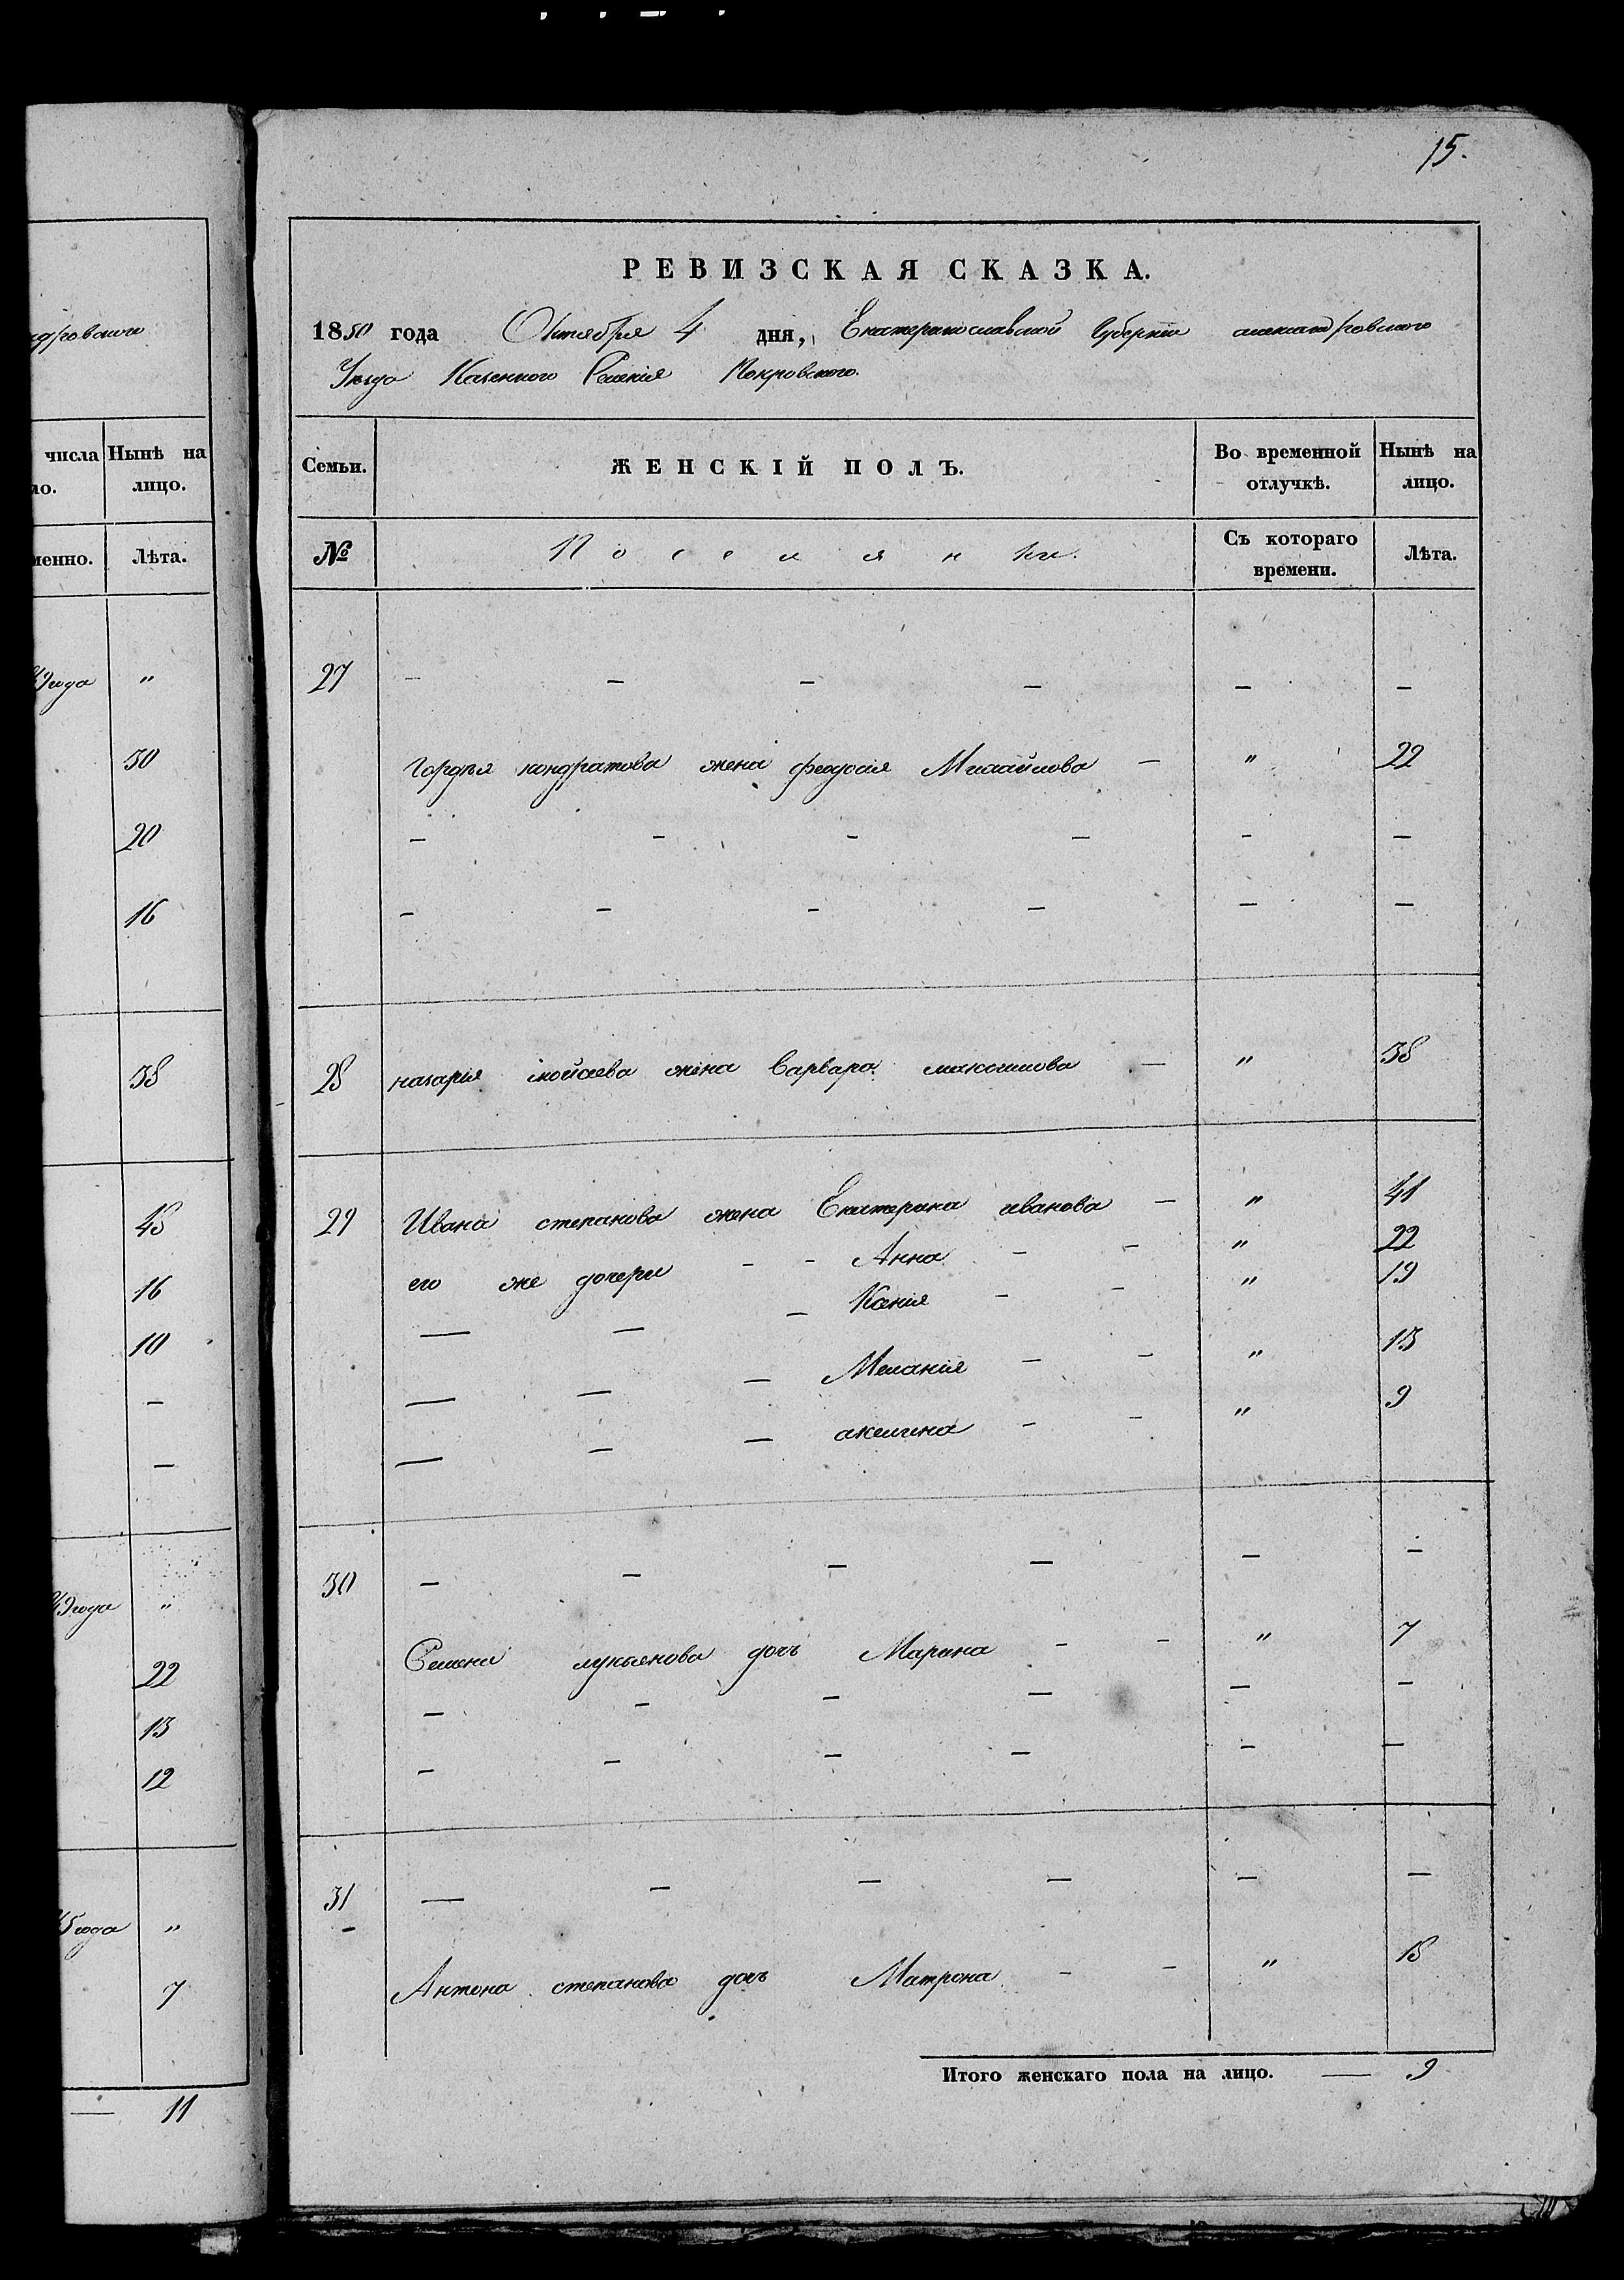 ндровскаго
числа Нынѣ на
ло. лицо.
менно. Лѣта.
49 года "
30
20
16
38
43
16
10
—
—
49 года "
22
13
12
45 года "
7
— 11
15.
РЕВИЗСКАЯ СКАЗКА.
1850 года Октября 4 дня, Екатеринославской Губерніи александровского
Уезда Казенного Селенія Покровского.
Семьи. ЖЕНСКІЙ ПОЛЪ. Во временной отлучкѣ. Нынѣ на лицо.
№ Поселянки. Съ котораго времени. Лѣта.
27 — — — — — —
Гордея кондратова жена феодосия Михайлова — " 22
— — — — — —
— — — — — —
28 назария мойсева жена Варвара максимова — " 38
29 Ивана степанова жена Екатерина иванова — " 41
его же дочери - - Анна - - " 22
— — — Ксения - - " 19
— — — Мелания - - " 13
— — — акелина - - " 9
30 — — — — — —
Семена лукьянова дочь Марина - - " 7
— — — — — —
— — — — — —
31 — — — — — —
-
Антона степанова дочь Матрона - - " 18
Итого женскаго пола на лицо. — 9